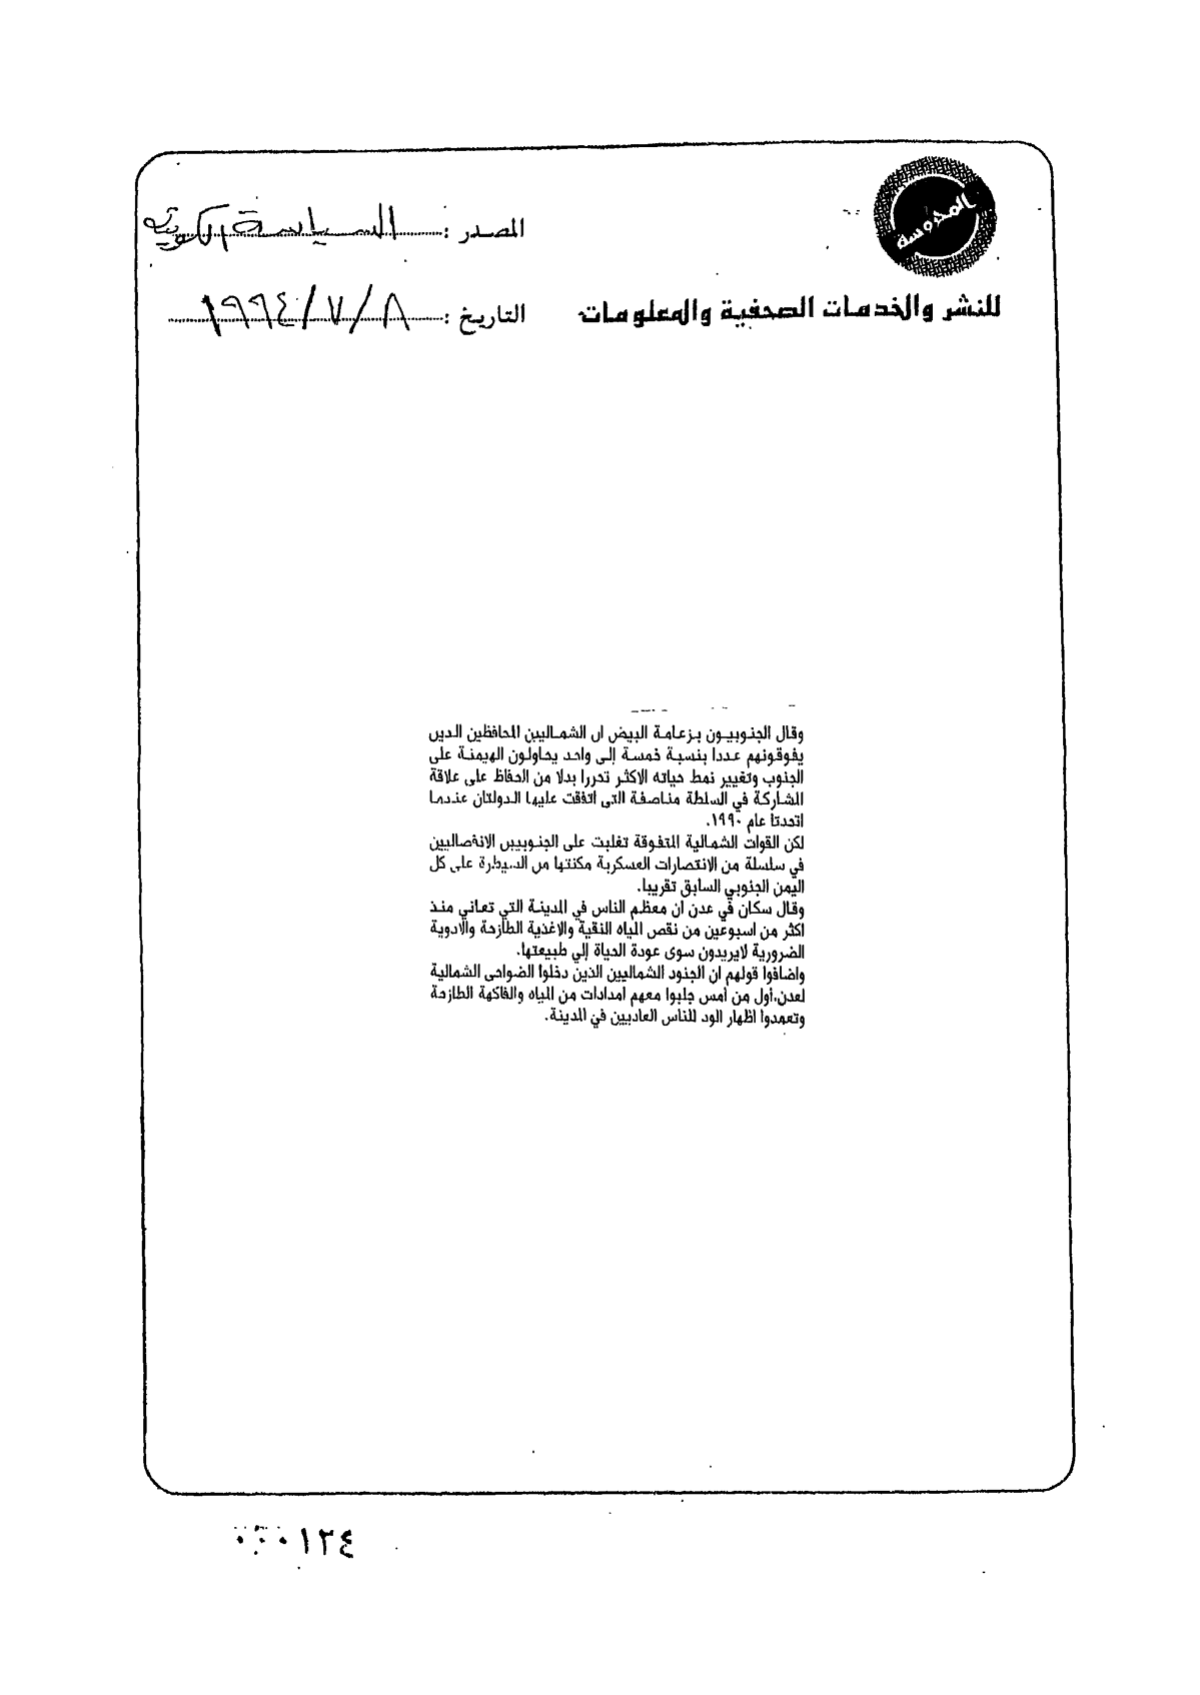 المحروسة
المصدر : السياسة الكويتية
للنشر والخدمات الصحفية والمعلومات
التاريخ : ٨/٧/١٩٩٤
وقال الجنوبيون بزعامة البيض ان الشماليين المحافظين الدين
يفوقونهم عددا بنسبة خمسة إلى واحد يحاولون الهيمنة على
الجنوب وتغيير نمط حياته الاكثر تحررا بدلا من الحفاظ على علاقة
المشاركة في السلطة مناصفة التى اتفقت عليها الدولتان عندما
اتحدتا عام ١٩٩٠.
لكن القوات الشمالية المتفوقة تغلبت على الجنوبيين الانفصاليين
في سلسلة من الانتصارات العسكرية مكنتها من السيطرة على كل
اليمن الجنوبي السابق تقريبا.
وقال سكان في عدن ان معظم الناس في المدينة التي تعاني منذ
اكثر من اسبوعين من نقص المياه النقية والاغذية الطازجة والادوية
الضرورية لايريدون سوى عودة الحياة إلي طبيعتها.
واضافوا قولهم ان الجنود الشماليين الذين دخلوا الضواحى الشمالية
لعدن،أول من أمس جلبوا معهم امدادات من المياه والفاكهة الطازجة
وتعمدوا اظهار الود للناس العاديين في المدينة.
٠٠٠١٢٤